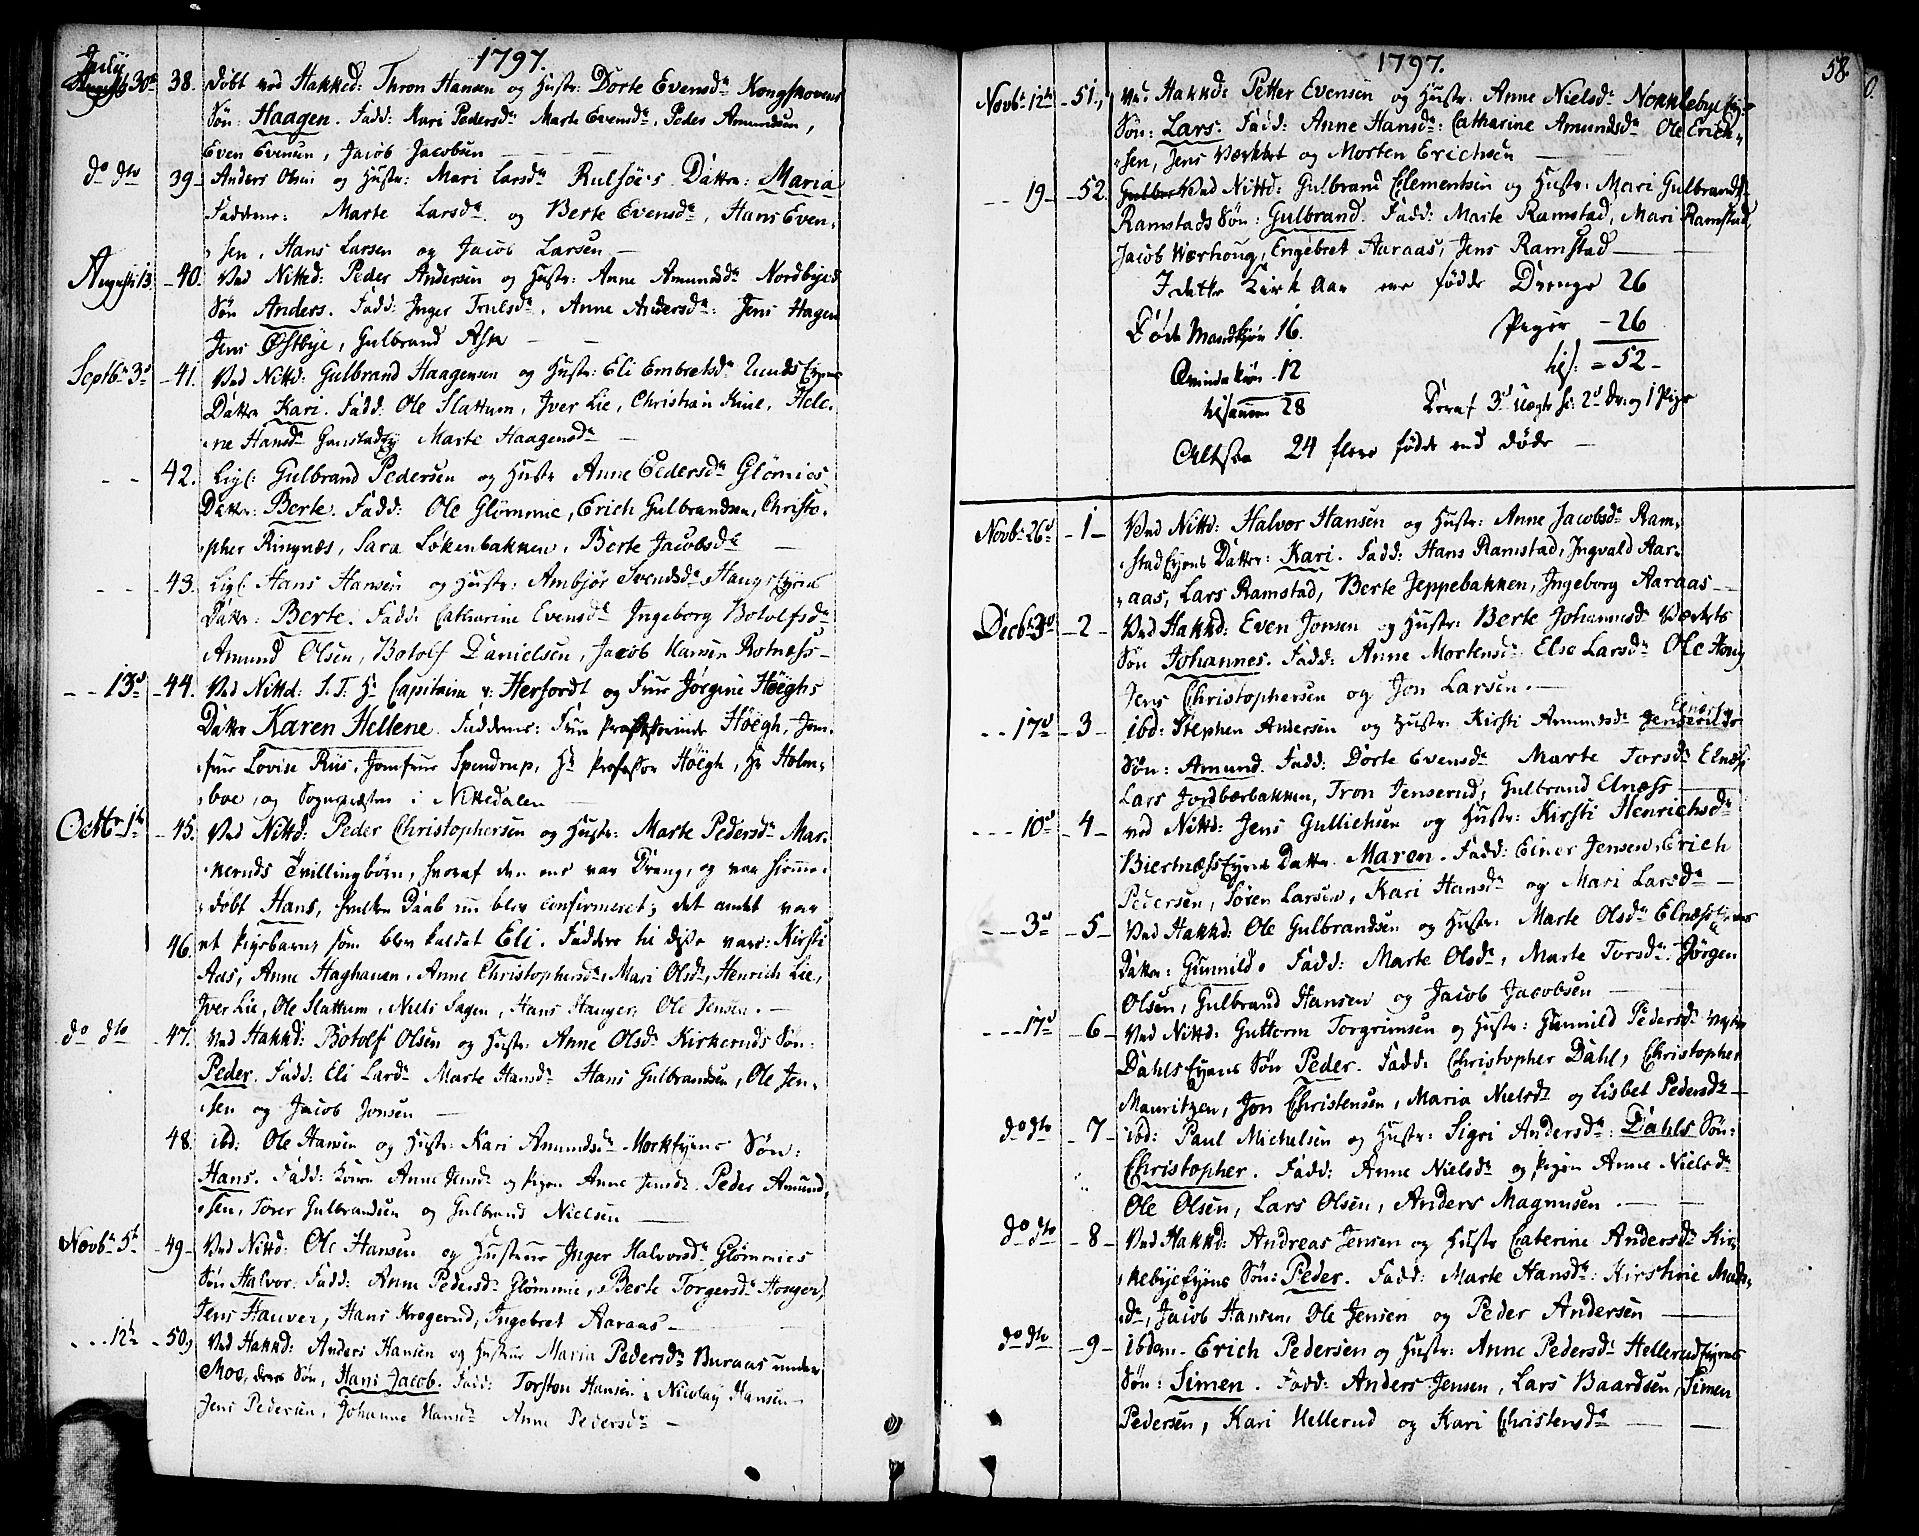 1797.
July 30te 38. Døbt ved Hakked: Thron Hansen og Hustr: Dorte Evensdr Kongskovens
Søn: Haagen. Fadd: Kari Pedersdr Marte Evensdr, Peder Amundsen,
Even Evensen, Jacob Jacobsen
do dto 39. Anders Olsen og Hustr: Mari Larsdr Rulsöe's Datter: Maria
Faddere: Marte Larsdr og Berte Evensdr, Hans Even-
sen, Hans Larsen og Jacob Larsen
Augusti 13. 40. Ved Nitted: Peder Andersen og Hustr: Anne Amundsdr Nordbyed
Søn Anders. Fadd: Inger Trulsdr, Anne Andersdr: Jens Hagen
Jens Østbye, Gulbrand Aster
Septbr 3d 41. Ved Nittd: Gulbrand Haagensen og Hustr: Eli Embretsdr Lunds Eyens
Datter Kari. Fadd: Ole Slattum, Iver Lie, Christian Kiul, Hele-
ne Hansdr Marte Haagensdr
42. Ligl: Gulbrand Pedersen og Hustr Anne Pedersdr Glömmies
Datter: Berte. Fadd: Ole Glömmie, Erich Gulbrandsen, Christo-
pher Ringnæs, Sara Løkenbakken, Berte Jacobsdr
43. Ligl. Hans Hansen og Hustr: Ambjør Svendsdr Haugs Eyens
Datter: Berte. Fadd: Catharine Evensdr Ingeborg Botolfsdr
Amund Olsen, Botolf Danielsen, Jacob Hansen Rotnæss
13d 44. Ved Nittd: S. T. Hr Capitain v: Herfordt og Frue Jörgine Höeghs
Datter Karen Hellene. Faddere: Frue Professorinde Höegh, Jom-
frue Lovise Riis, Jomfrue Spendrup, Hr Professor Höegh, Hr Holm-
boe, og Sognepræsten i Nittedalen
Octbr 1te 45. Ved Nittd: Peder Christophersen og Hustr: Marte Pedersdr Mar-
keruds Tvillingbørn, hvoraf den ene var Dreng, og var hjemme-
døbt Hans, hvilken Daab nu blev confirmeret; det andet var
46. et Pigebarn, som blev kaldet Eli. Faddere til disse vare: Kirsti
Aas, Anne Haghauen, Anne Christophersdr, Mari Olsdr, Henrich Lie,
Iver Lie, Ole Slattum, Niels Sagen, Hans Hauger, Ole Jensen.
do dto 47. Ved Hakkd: Botolf Olsen og Hustr: Anne Olsdr Kirkeruds Søn:
Peder. Fadd: Eli Larsdr Marte Hansdr Hans Gulbrandsen, Ole Jen-
sen og Jacob Jonsen
48. ibd: Ole Hansen og Hustr: Kari Amundsdr Morkeyens Søn:
Hans. Fadd: Konen Anne Jensdr og Pigen Anne Jensdr Peder Amund-
sen, Torer Gulbrandsen og Gulbrand Nielsen
Novbr 5t 49. Ved Nittd: Ole Hansen og Hustrue Inger Halvorsdr Glömmies
Søn Halvor. Fadd: Anne Pedersdr Glömmie, Berte Torgersdr Houger,
Jens Hauver, Hans Krogerud, Ingebret Aaraas
12te 50. Ved Hakkd: Anders Hansen og Hustrue Maria Pedersdr Buraas under
Moe, deres Søn, Hans Jacob. Fadd: Torsten Hansen, Nicolay Hansen
Jens Pedersen, Johanne Hansdr Anne Pedersdr
1797.
58
Novbr 12te 51. Ved Hakkd: Petter Evensen og Hustr: Anne Nielsdr Nokkleby
Søn: Lars. Fadd: Anne Hansdr: Catharine Amundsdr Ole Erich-
sen, Jens Værkket og Morten Erichsen
19 52. Ved Nittd: Gulbrand Clementsen og Hustr: Mari Gulbrandsdr
Ramstads Søn: Gulbrand. Fadd: Marte Ramstad, Mari Ramstad,
Jacob Wærhoug, Engebret Aaraas, Jens Ramstad
I dette Kirke Aar ere fødde Drenge 26
Døde Mandkjøn 16. Piger 26
tils: = 52
Qvindekjøn 12
tilsammen 28 Deraf 3d Uegte h: 2d Dr: og 1 Pige
Altsaa 24 flere fødde end døde
Novbr 26d 1 Ved Nittd: Halvor Hansen og Hustr: Anne Jacobsdr Ram-
stad Eyens Datter: Kari. Fadd: Hans Ramstad, Ingvald Aar-
aas, Lars Ramstad, Berte Jeppebakken, Ingeborg Aaraas
Decbr 3d 2 Ved Hakkd: Even Jonsen og Hustr: Berte Johannesdr Værkets
Søn Johannes. Fadd: Anne Mortensdr Else Larsdr Ole Houg
Jens Christophersen og Jon Larsen.
17d 3 ibd: Stephen Andersen og Hustr: Kirsti Amundsdr Jenseruds Elnæs
Søn: Amund. Fadd: Dorte Evensdr Marte Torsdr Elnæss
Lars Jordbærbakken, Tron Jenserud, Gulbrand Elness
10d 4 ved Nittd: Jens Gullichsen og Hustr: Kirsti Henrichsdr
Biertnæss Eyens Datter Maren. Fadd: Einer Jensen, Erich
Pedersen, Søren Larsen, Kari Hansdr og Mari Larsdr
3d 5 Ved Hakkd: Ole Gulbrandsen og Hustr: Marte Olsdr Elnæss Eyens
Datter: Gunnild. Fadd: Marte Olsdr, Marte Torsdr. Jörgen
Olsen, Gulbrand Hansen og Jacob Jacobsen
17d 6 Ved Nittd: Guttorm Torgrimsen og Hustr: Gunnild Pedersdr
Dahls Eyens Søn Peder. Fadd: Christopher Dahl, Christopher
Mauritzen, Jon Christensen, Maria Nielsdr og Lisbet Pedersdr
do dto 7 ibd: Paul Michelsen og Hustr: Sigri Andersdr: Dahls Søn:
Christopher. Fadd: Anne Nielsdr og Pigen Anne Nielsdr
Ole Olsen, Lars Olsen, Anders Magnusen.
do dto 8 Ved Hakkd: Andreas Jensen og Hustr Caterine Andersdr Kir-
kebye Eyens Søn: Peder. Fadd: Marte Hansdr: Kirstine Mads-
dr, Jacob Hansen, Ole Jensen og Peder Andersen
do dto 9 ibdem. Erich Pedersen og Hustr: Anne Pedersdr Hellerud Eyens
Søn: Simen. Fadd: Anders Jensen, Lars Baardsen, Simen
Pedersen, Kari Hellerud og Kari Christensdr